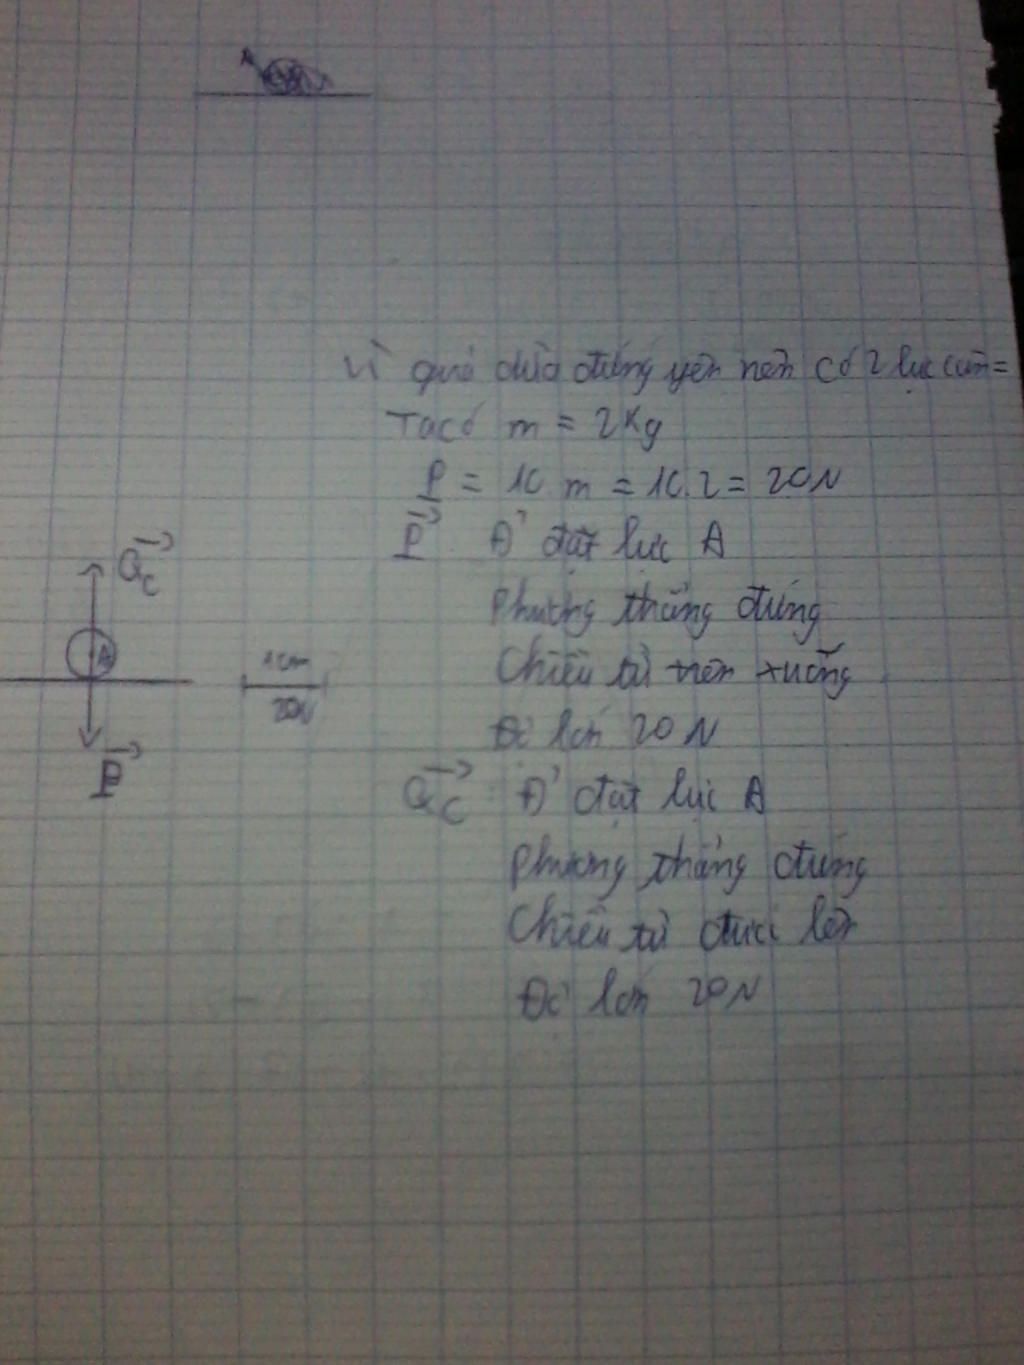 A
Vì quả dừa đứng yên nên có 2 lực cân =
Ta có m = 2Kg
P = 10.m = 10.2 = 20N
P Đ' đặt lực A
Phương thẳng đứng
Chiều từ trên xuống
Độ lớn 20 N
Qc : Đ' đặt lực A
Phương thẳng đứng
Chiều từ dưới lên
Độ lớn 20N
Qc
A
1cm
20N
P